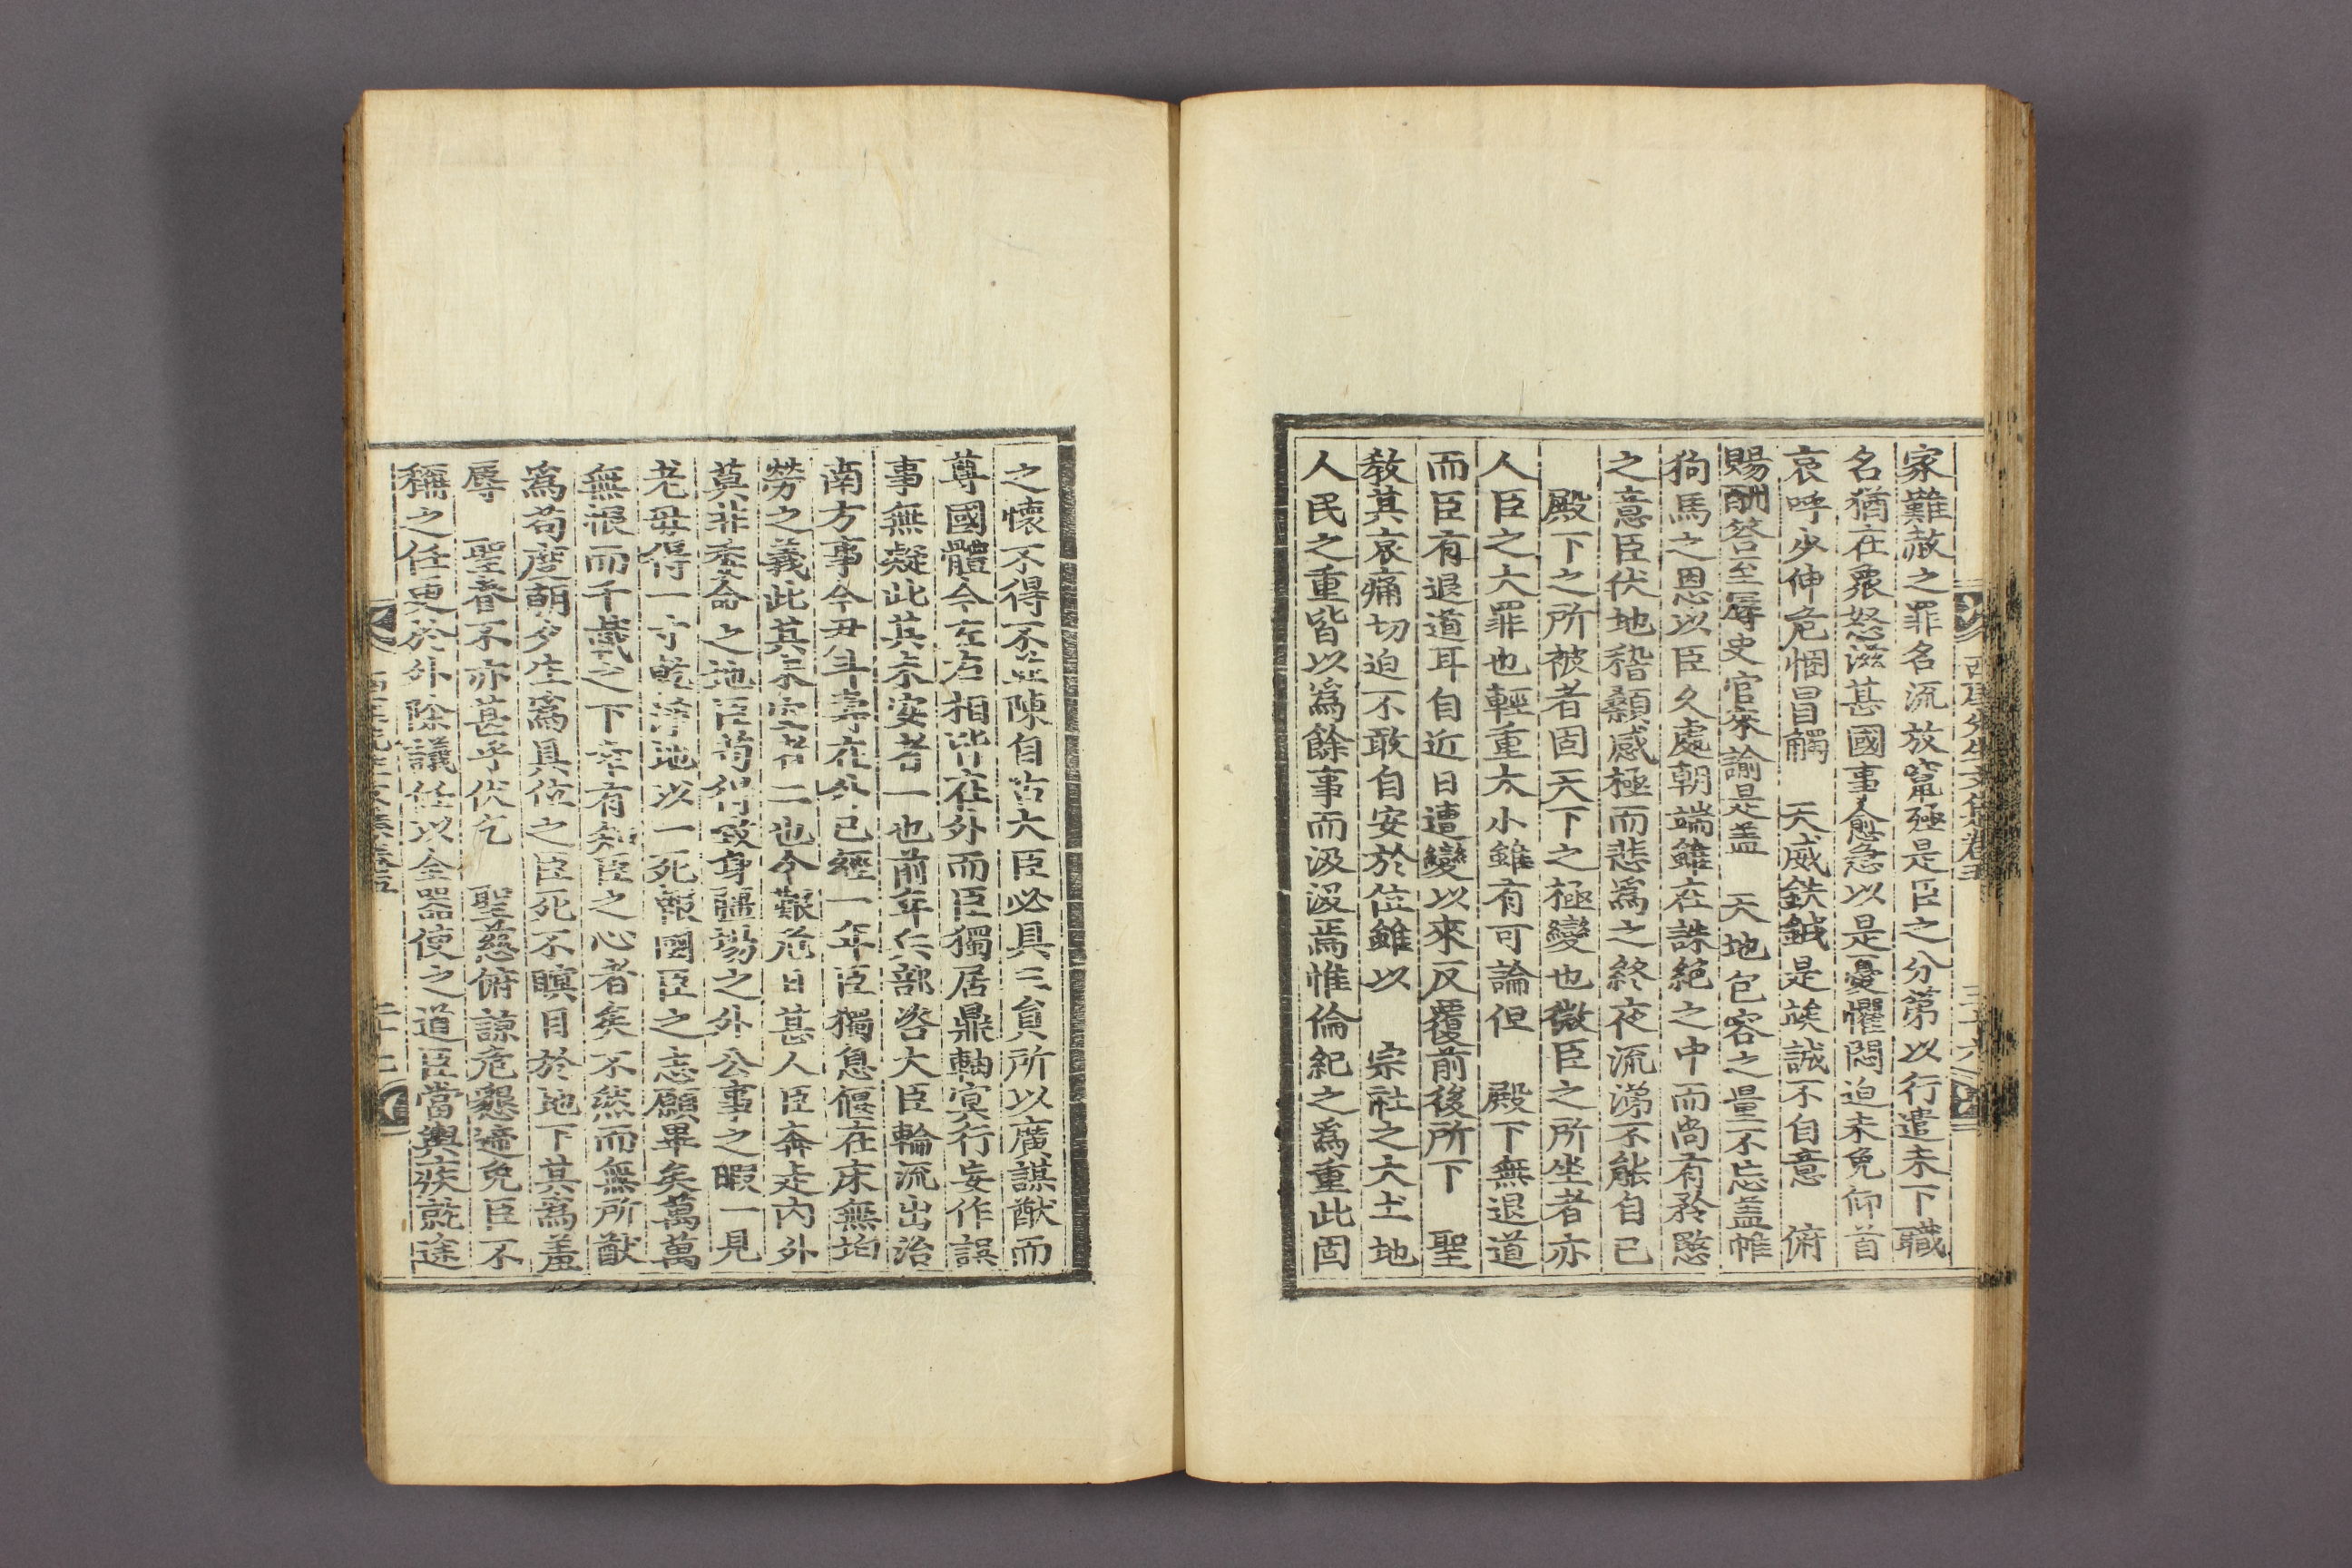 西厓先生文集卷五
家難赦之罪名流放竄殛是臣之分第以行遣未下職
名猶在衆怒滋甚國事愈急以是憂懼悶迫未免仰首
哀呼少伸危悃冒觸 天威鈇鉞是竢誠不自意 俯
賜酬答至辱史官來諭是盖 天地包容之量不忘盖帷
狗馬之恩以臣久處朝端雖在誅絶之中而尙有矜愍
之意臣伏地稽顙感極而悲爲之終夜流涕不能自已
殿下之所被者固天下之極變也微臣之所坐者亦
人臣之大罪也輕重大小雖有可論但 殿下無退道
而臣有退道耳自近日遭變以來反覆前後所下 聖
敎其哀痛切迫不敢自安於位雖以 宗社之大土地
人民之重皆以爲餘事而汲汲焉惟倫紀之爲重此固
之懷不得不並陳自古大臣必具三員所以廣謀猷而
尊國體今左右相皆在外而臣獨居鼎軸冥行妄作誤
事無疑此其未安者一也前年兵部咨大臣輪流出治
南方事今尹斗壽在外已經一年臣獨息偃在床無均
勞之義此其未安者二也今艱危日甚人臣奔走內外
莫非委命之地臣苟得致身疆場之外公事之暇一見
老母得一寸乾淨地以一死報國臣之志願畢矣萬萬
無恨而千載之下幸有知臣之心者矣不然而無所猷
爲苟度朝夕生爲具位之臣死不瞑目於地下其爲羞
辱 聖眷不亦甚乎伏乞 聖慈俯諒危懇遞免臣不
稱之任更於外除議任以全器使之道臣當輿疾就途
西厓先生文集卷五